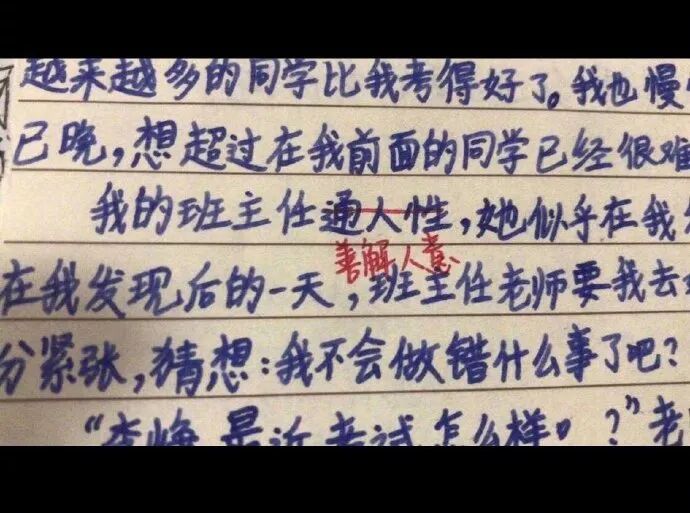 越来越多的同学比我考得好了。我也慢
已晚,想超过在我前面的同学已经很难
我的班主任通人性,她似乎在我
善解人意
在我发现后的一天,班主任老师要我去
分紧张,猜想:我不会做错什么事了吧?
最近考试怎么样。?”老